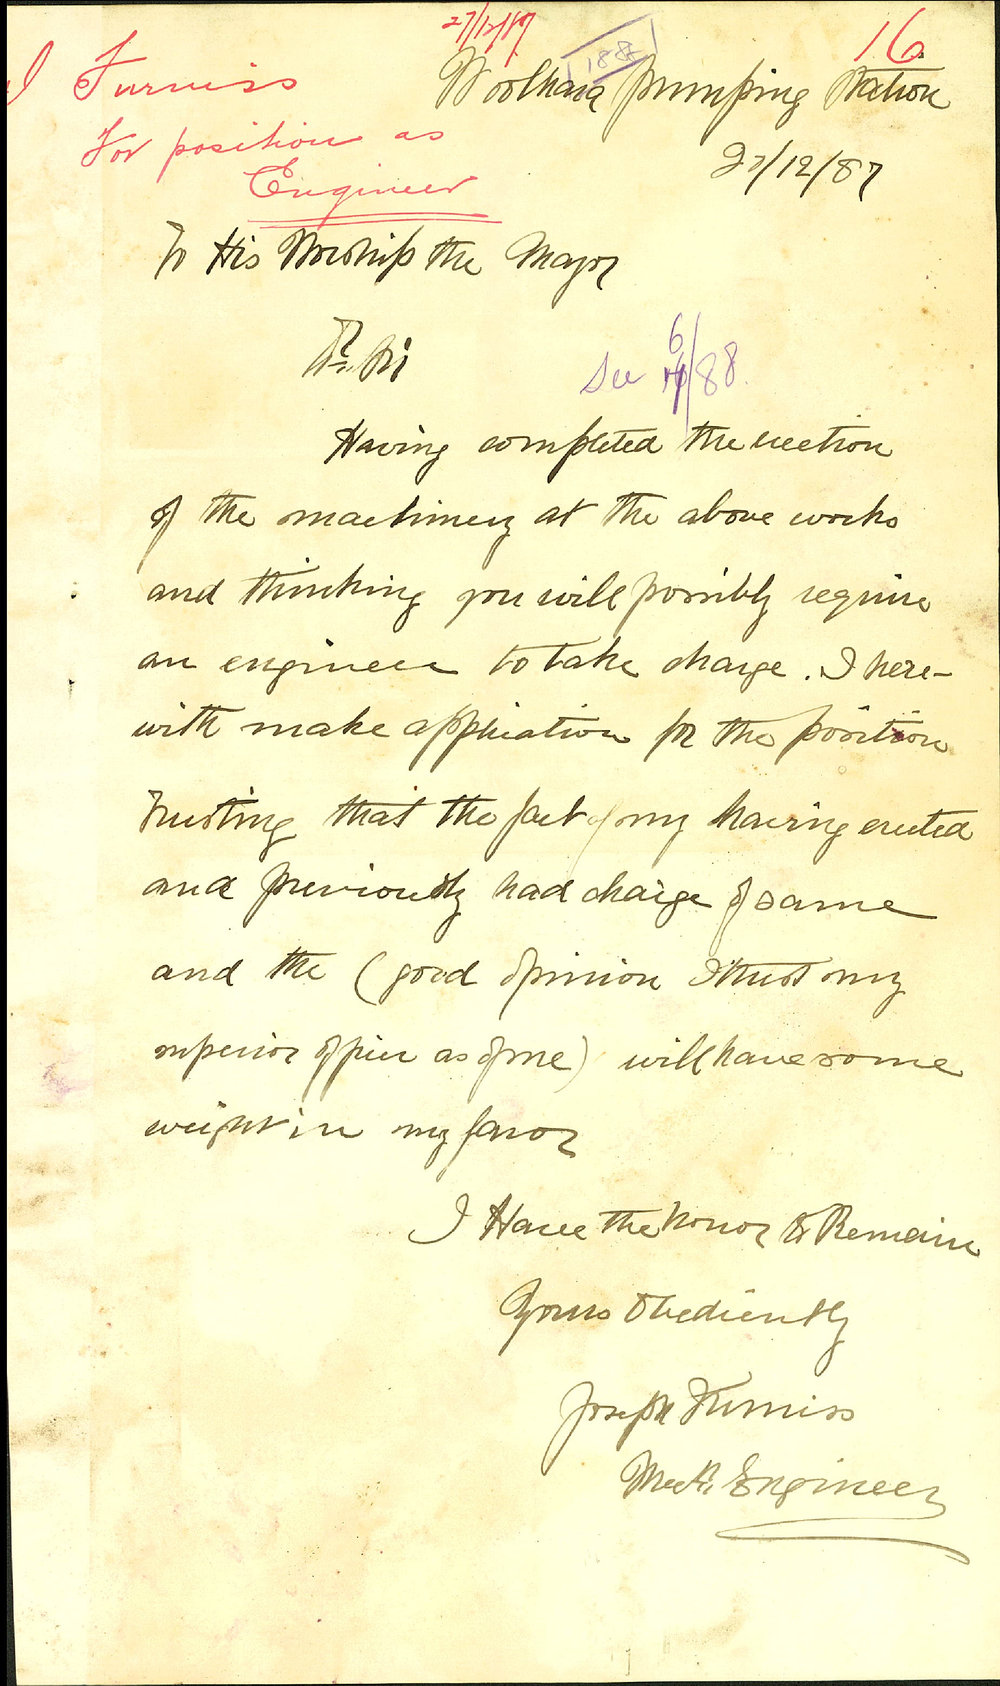 27/12/87
16
J Furniss
For position as
Engineer
1888
Woolhara pumping Station
27/12/87
To His Worship the Mayor
Dr Sir
See 6/88
Having completed the erection
of the machinery at the above works
and thinking you will possibly require
an engineer to take charge. I here-
with make application for the position
trusting that the fact of my having erected
and previously had charge of same
and the (good opinion I trust my
superior officer as of me) will have some
weight in my favor
I Have the honor to Remain
Yours Obediently
Joseph Furniss
Mech. Engineer